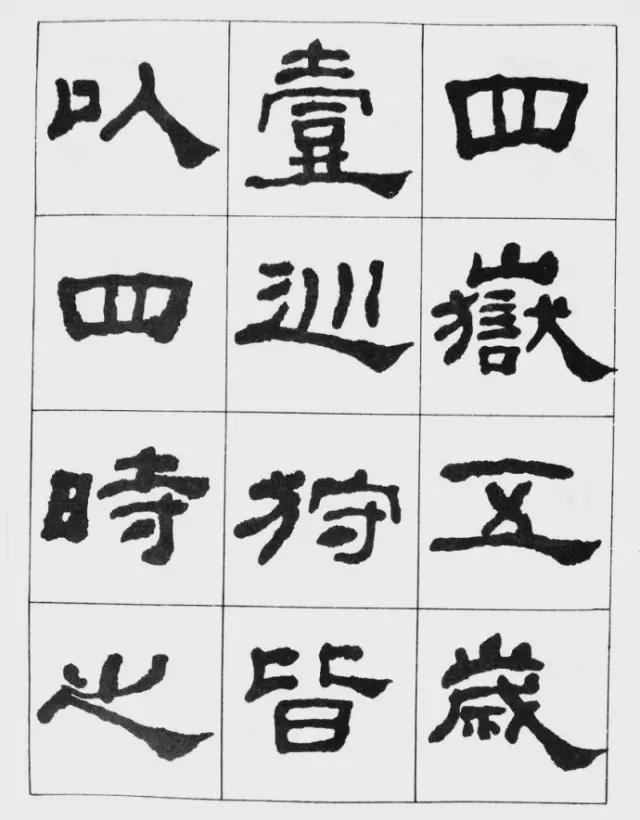 四嶽五歲
壹巡狩皆
以四時之